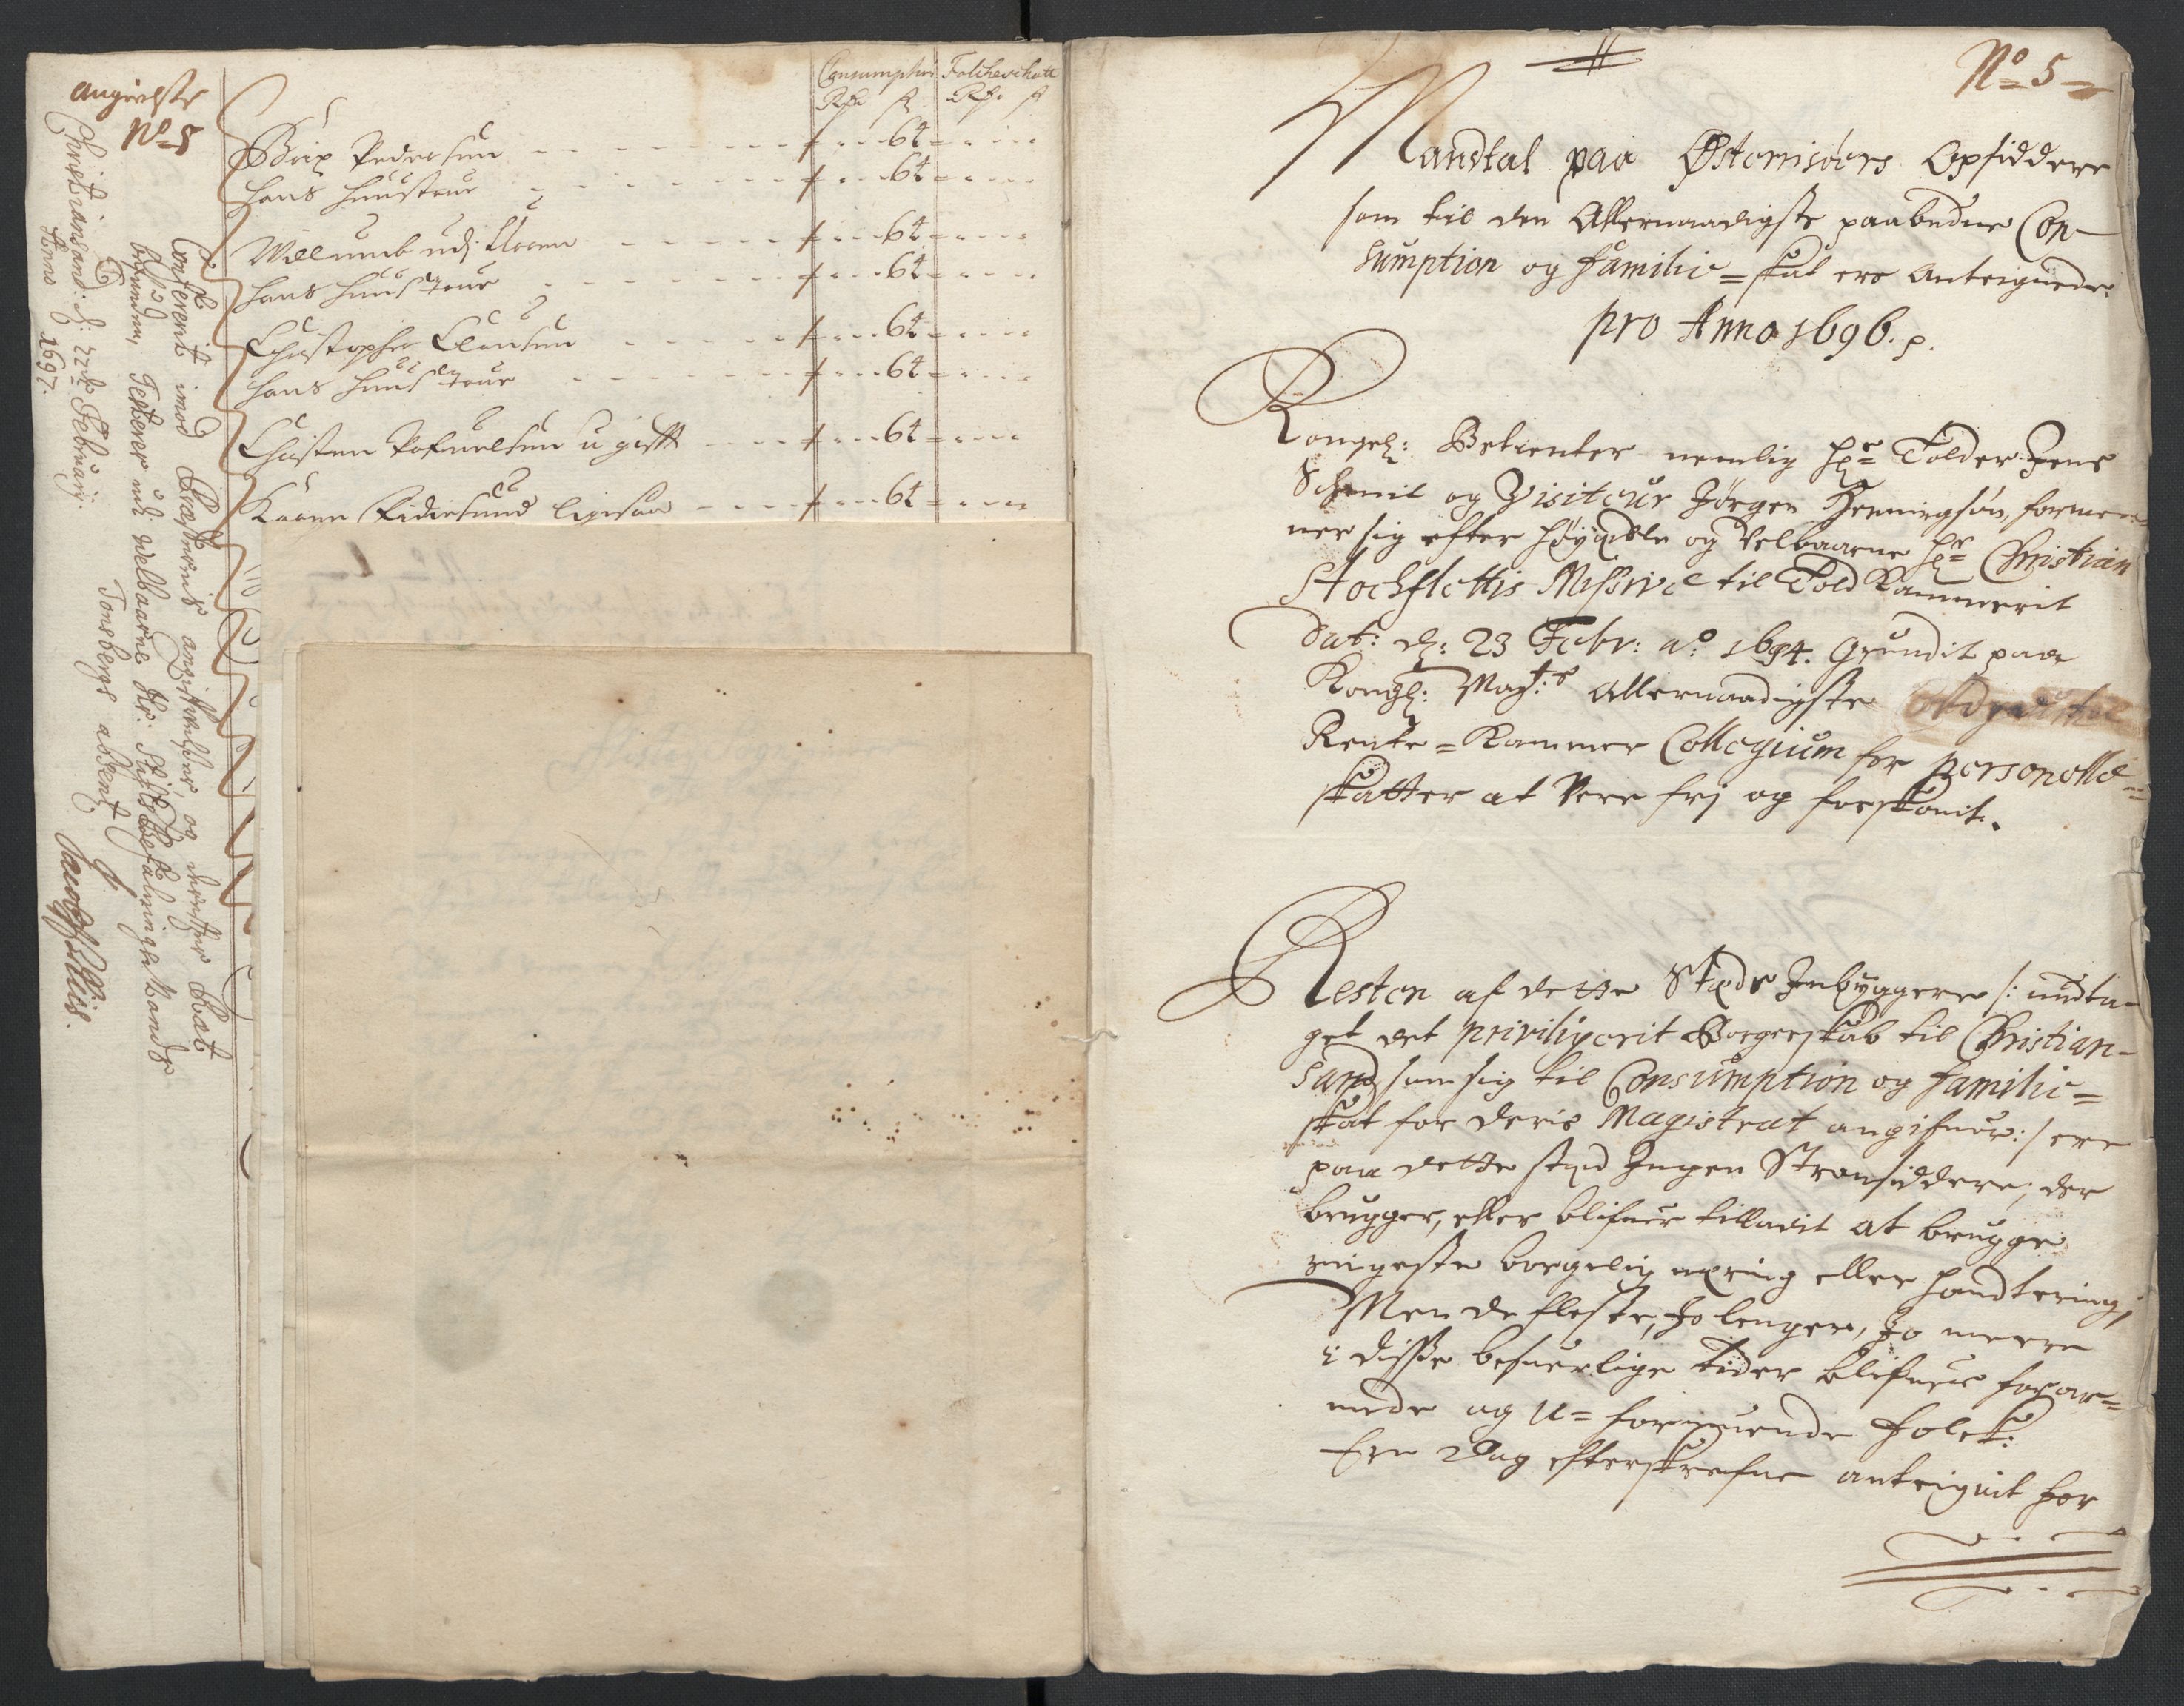 angifvelse
No 5
Consumption Folcheschatt
Rdr ß Rdr ß
Brix Pedersen - - - 64 -
hans hustrue - - - 64 -
Willumb udj - - - 64 -
hans hustrue - - - 64 -
Christopher Clausen - - - 64 -
hans hustrue - - - 64 -
Christen u gifft - - - 64 -
Karen ligesaa - - - 64 -
Confererit imod angiffvelser, og derefter
befunden, Testerer udj welbaarne Hr: Stiftsbefalnings Mands
Tonsbergs absentz
Christiansand: d: 22de Februarij.
Anno 1697.
No 5
Mandtal paa Østerrisøers Opsiddere
som til den Allernaadigste paabudne Con-
sumption og familie = skat ere Anteignede
pro Anno 1696. p.
Kongel: Betienter nemlig Hr Tolder Jens
Schmit og Visiteur Jørgen Henningsøn, formee-
ner sig efter høyædle og Velbaarne Hr Christian
Stochflettis Missive til Told Kammerit
Dat: d: 23 Febr: ao 1694. grundit paa
Kongl: Mayts Allernaadigste
Rente = Kammer Collegium for personelle
skatter at Vere frj og forskonit.
Resten af dette Stæds Inbyggere /: undta-
get det priviligerit Borgerskab til Christian-
sand som sig til Consumption og familie =
skat for deris Magistrat angifuer :/ ere
paa dette stæd Ingen Strandsiddere, der
brugger, eller blifuer tilladit at brugge
ringeste borgelig næring eller handtering,
Men de fleste, Jo lenger, Jo meere
i disse besuerlige tider blifuer forar=
mede og U= formuende folck:
Ere Dag efterskrefne anteignit for